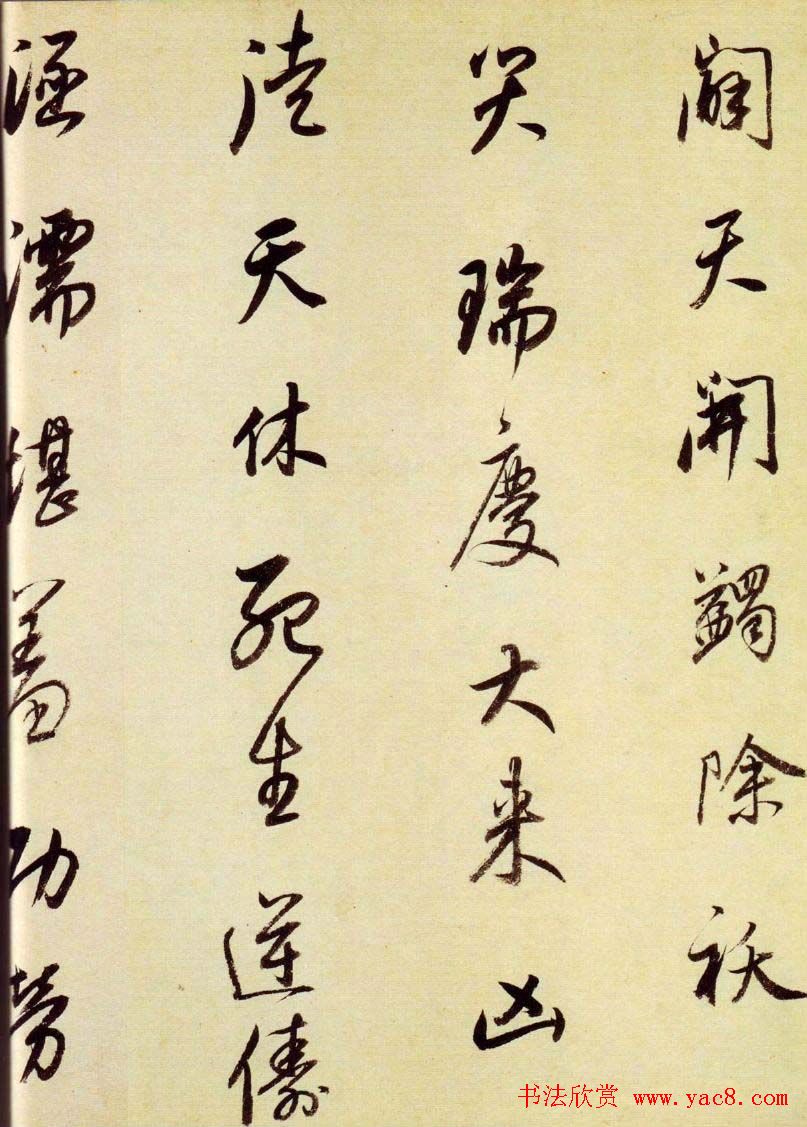 闢天開蠲除祅
災瑞慶大来凶
徒天休死生逆儔
涵濡堪羞功勞
书法欣赏 www.yac8.com